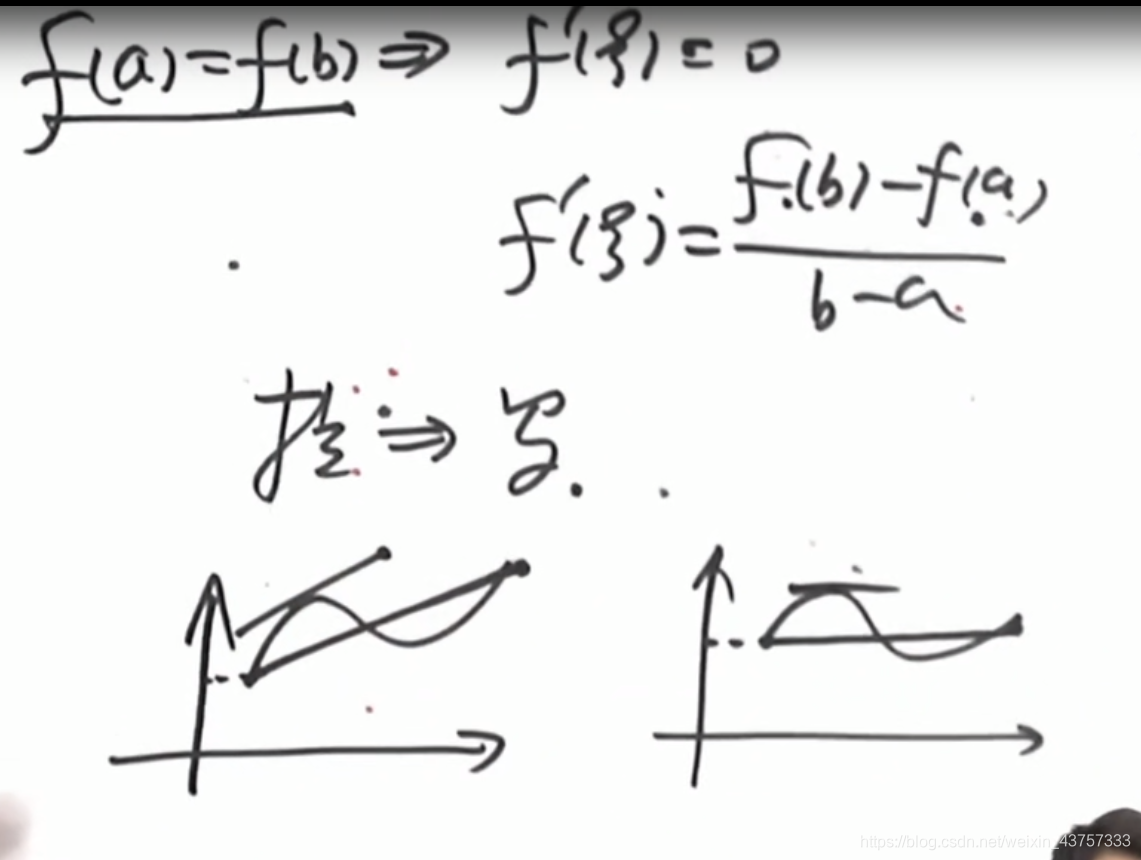 f(a)=f(b)⇒ f'(ξ)=0
f'(ξ)=\frac{f(b)-f(a)}{b-a}
⇒ ξ.
https://blog.csdn.net/weixin_43757333